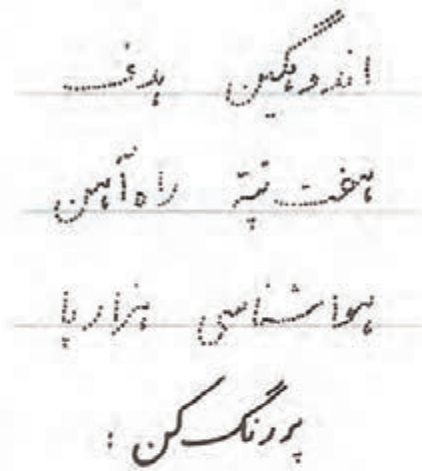 اندوهگین هدف
هفت تپه راه‌آهن
هواشناسی هزارپا
پررنگ کن :